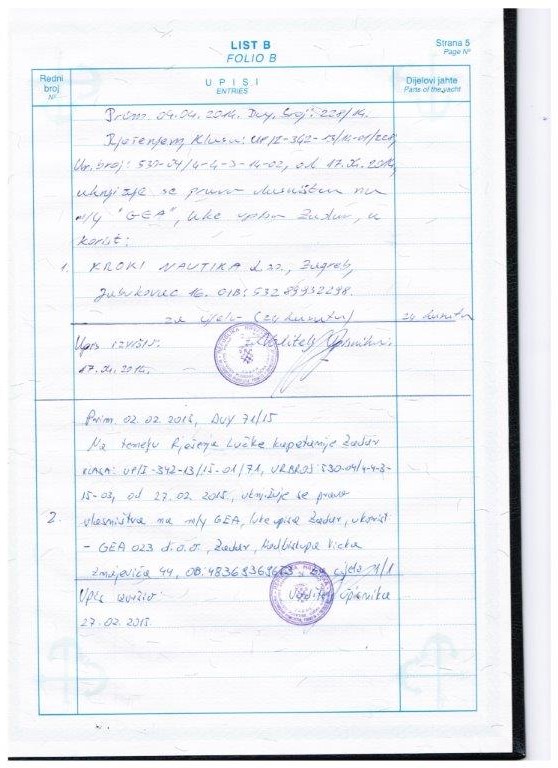 LIST B
FOLIO B
Strana 5
Page Nº
Redni broj
Nº
UPISI
ENTRIES
Dijelovi jahte
Parts of the yacht
Prim. 04.04.2014. Duy. broj: 228/14.
Rješenjem Klasa: UP/I-342-13/14-01/228,
Ur. broj: 530-04/4-4-3-14-02, od 17.04.2014,
uknjižuje se pravo vlasništva na
m/y "GEA", luke upisa Zadar, u
korist:
1. KROKI NAUTIKA d.o.o., Zagreb,
Jabukovac 16. OIB: 53289932298.
za cijelo (24 karata) 24 karata
Upis izvršio: Voditelj Upisnika:
17.04.2014.
Prim. 02.02.2015, Duy 71/15
Na temelju Rješenja Lučke kapetanije Zadar
KLASA: UP/I-342-13/15-01/71, URBROJ: 530-04/4-4-3-
15-03, od 27.02.2015, uknjižuje se pravo
2. vlasništva na m/y GEA, luke upisa Zadar, u korist
- GEA 023 d.o.o., Zadar, Nadbiskupa Vicka
Zmajevića 44, za cijelo 1/1
Upis izvršio: Voditelj upisnika
27.02.2015